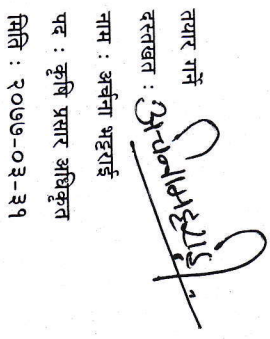 तयार गर्ने
दस्तखत : अर्चना भट्टराई
नाम : अर्चना भट्टराई
पद : कृषि प्रसार अधिकृत
मिति : २०७७-०३-३१